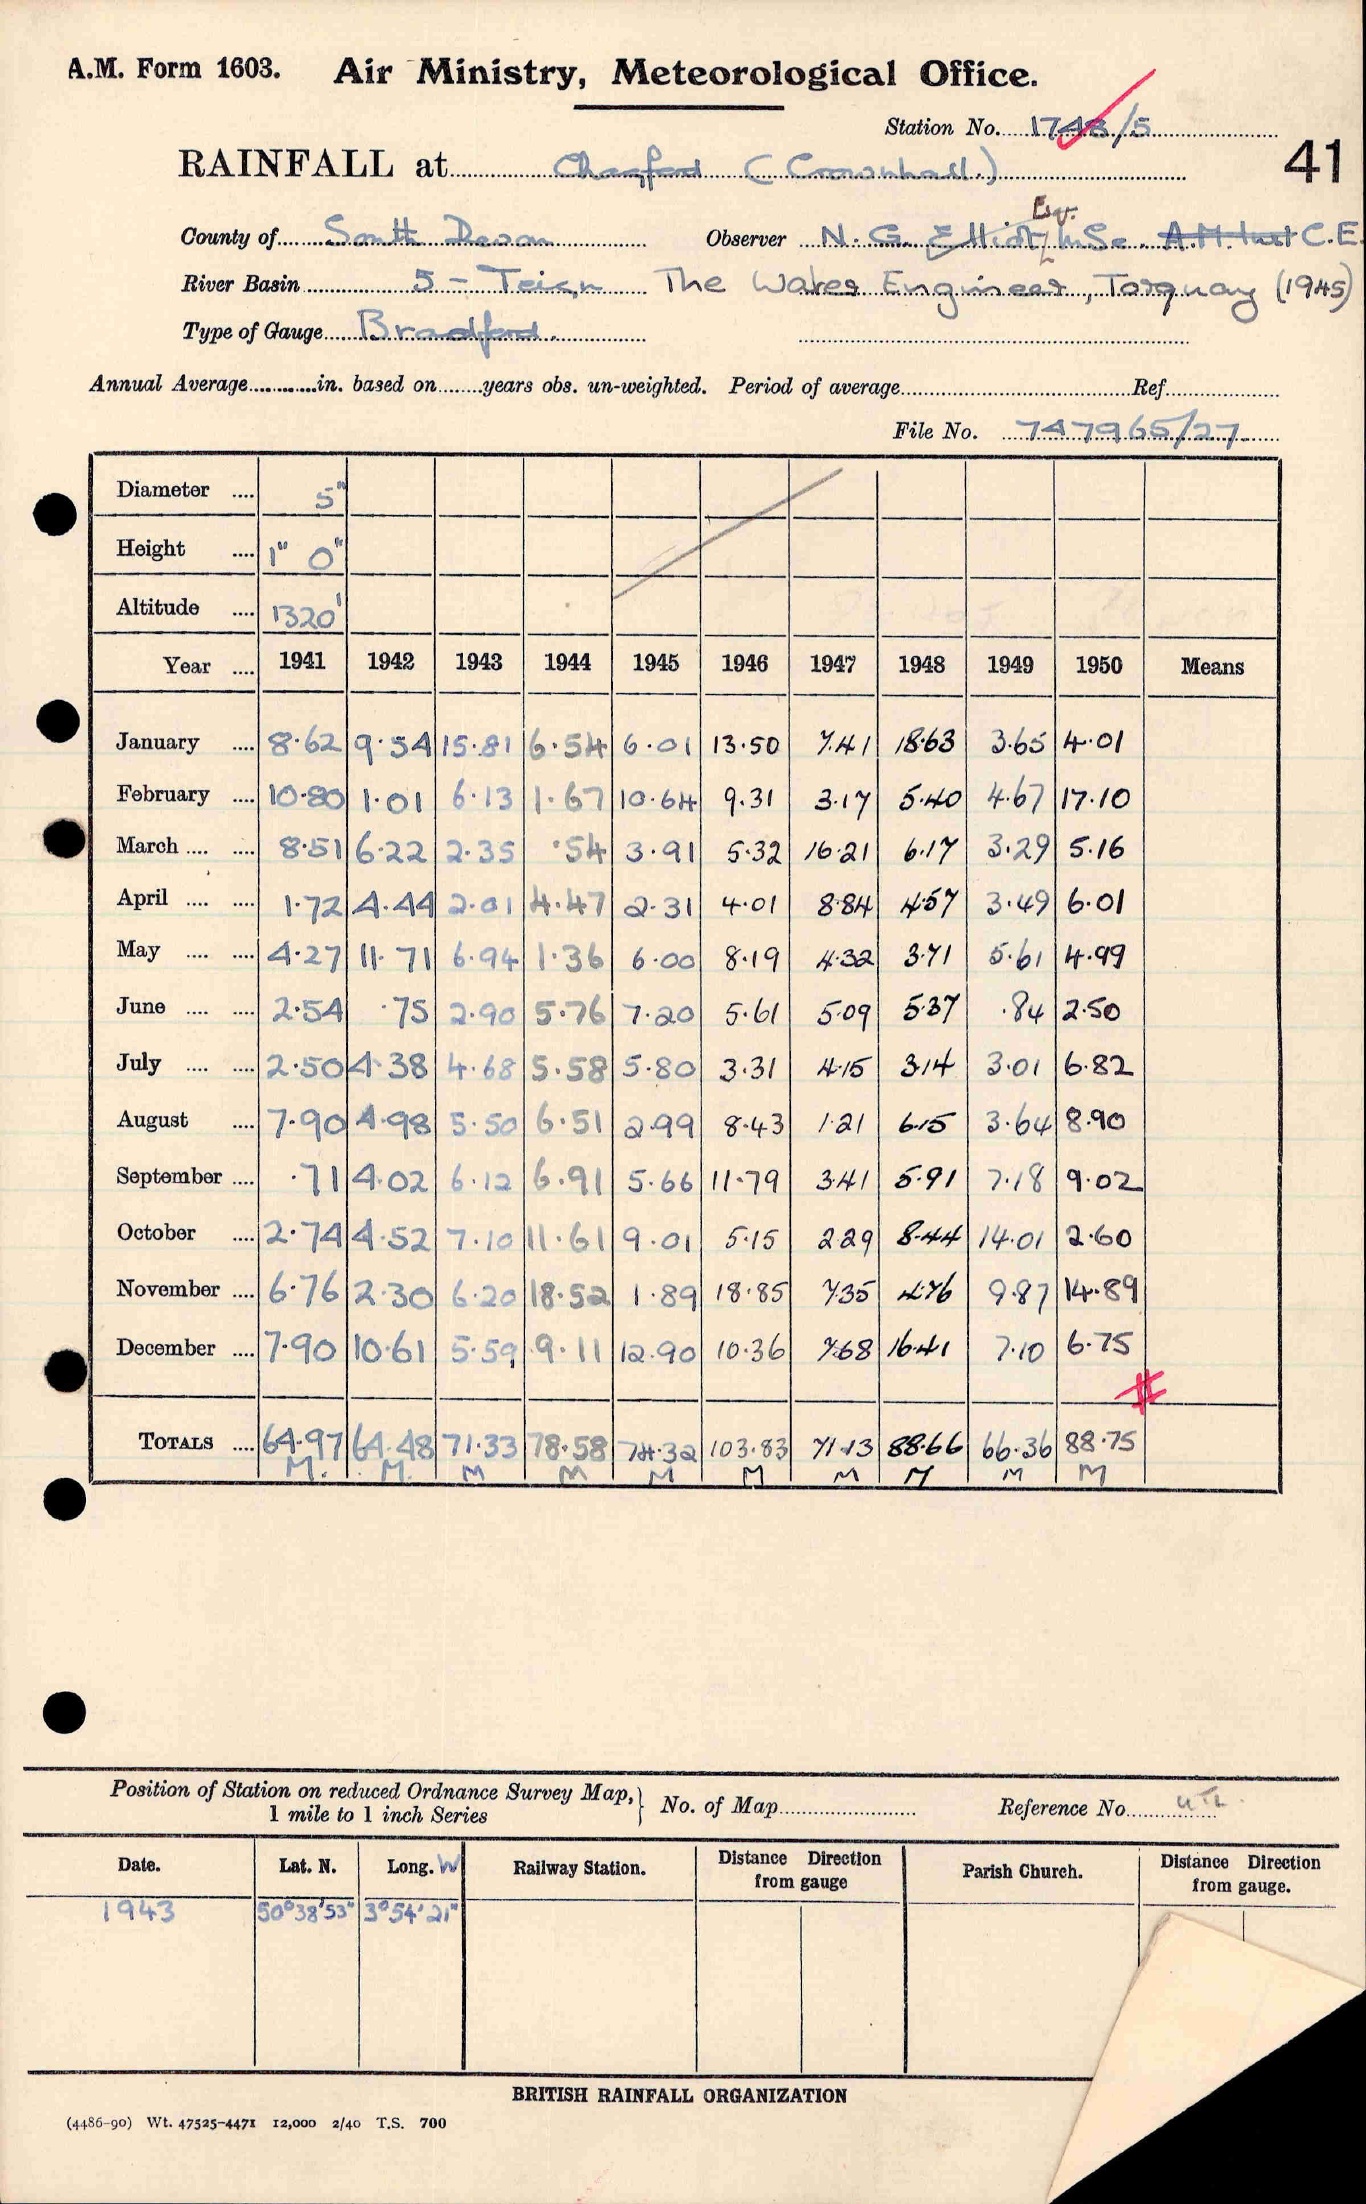 A.M. Form 1603. Air Ministry, Meteorological Office.
Station No. 1748/5
41
RAINFALL at Chagford (Crownhall.)
Esq.
County of South Devon Observer N. G. Elliot, MSc. A.M. Inst C.E.
River Basin 5 - Teign The Water Engineer, Torquay (1945)
Type of Gauge Bradford.
Annual Average in. based on years obs. un-weighted. Period of average Ref
File No. 747965/27
Diameter 5"
Height 1" 0"
Altitude 1320'
Year 1941 1942 1943 1944 1945 1946 1947 1948 1949 1950 Means
January 8.62 9.54 15.81 6.54 6.01 13.50 7.41 18.63 3.65 4.01
February 10.80 1.01 6.13 1.67 10.64 9.31 3.17 5.40 4.67 17.10
March 8.51 6.22 2.35 .54 3.91 5.32 16.21 6.17 3.29 5.16
April 1.72 4.44 2.01 4.47 2.31 4.01 8.84 4.57 3.49 6.01
May 4.27 11.71 6.94 1.36 6.00 8.19 4.32 3.71 5.61 4.99
June 2.54 .75 2.90 5.76 7.20 5.61 5.09 5.37 .84 2.50
July 2.50 4.38 4.68 5.58 5.80 3.31 4.15 3.14 3.01 6.82
August 7.90 4.98 5.50 6.51 2.99 8.43 1.21 6.15 3.64 8.90
September .71 4.02 6.12 6.91 5.66 11.79 3.41 5.91 7.18 9.02
October 2.74 4.52 7.10 11.61 9.01 5.15 2.29 8.44 14.01 2.60
November 6.76 2.30 6.20 18.52 1.89 18.85 7.35 4.76 9.87 14.89
December 7.90 10.61 5.59 9.11 12.90 10.36 7.68 16.41 7.10 6.75
TOTALS 64.97 64.48 71.33 78.58 74.32 103.83 71.13 88.66 66.36 88.75
M. M. M M M M M M M M
Position of Station on reduced Ordnance Survey Map,
1 mile to 1 inch Series
No. of Map Reference No.
Date. Lat. N. Long. W Railway Station. Distance Direction from gauge Parish Church. Distance Direction from gauge.
1943 50°38'53" 3°54'21"
BRITISH RAINFALL ORGANIZATION
(4486-90) Wt. 47525-4471 12,000 2/40 T.S. 700